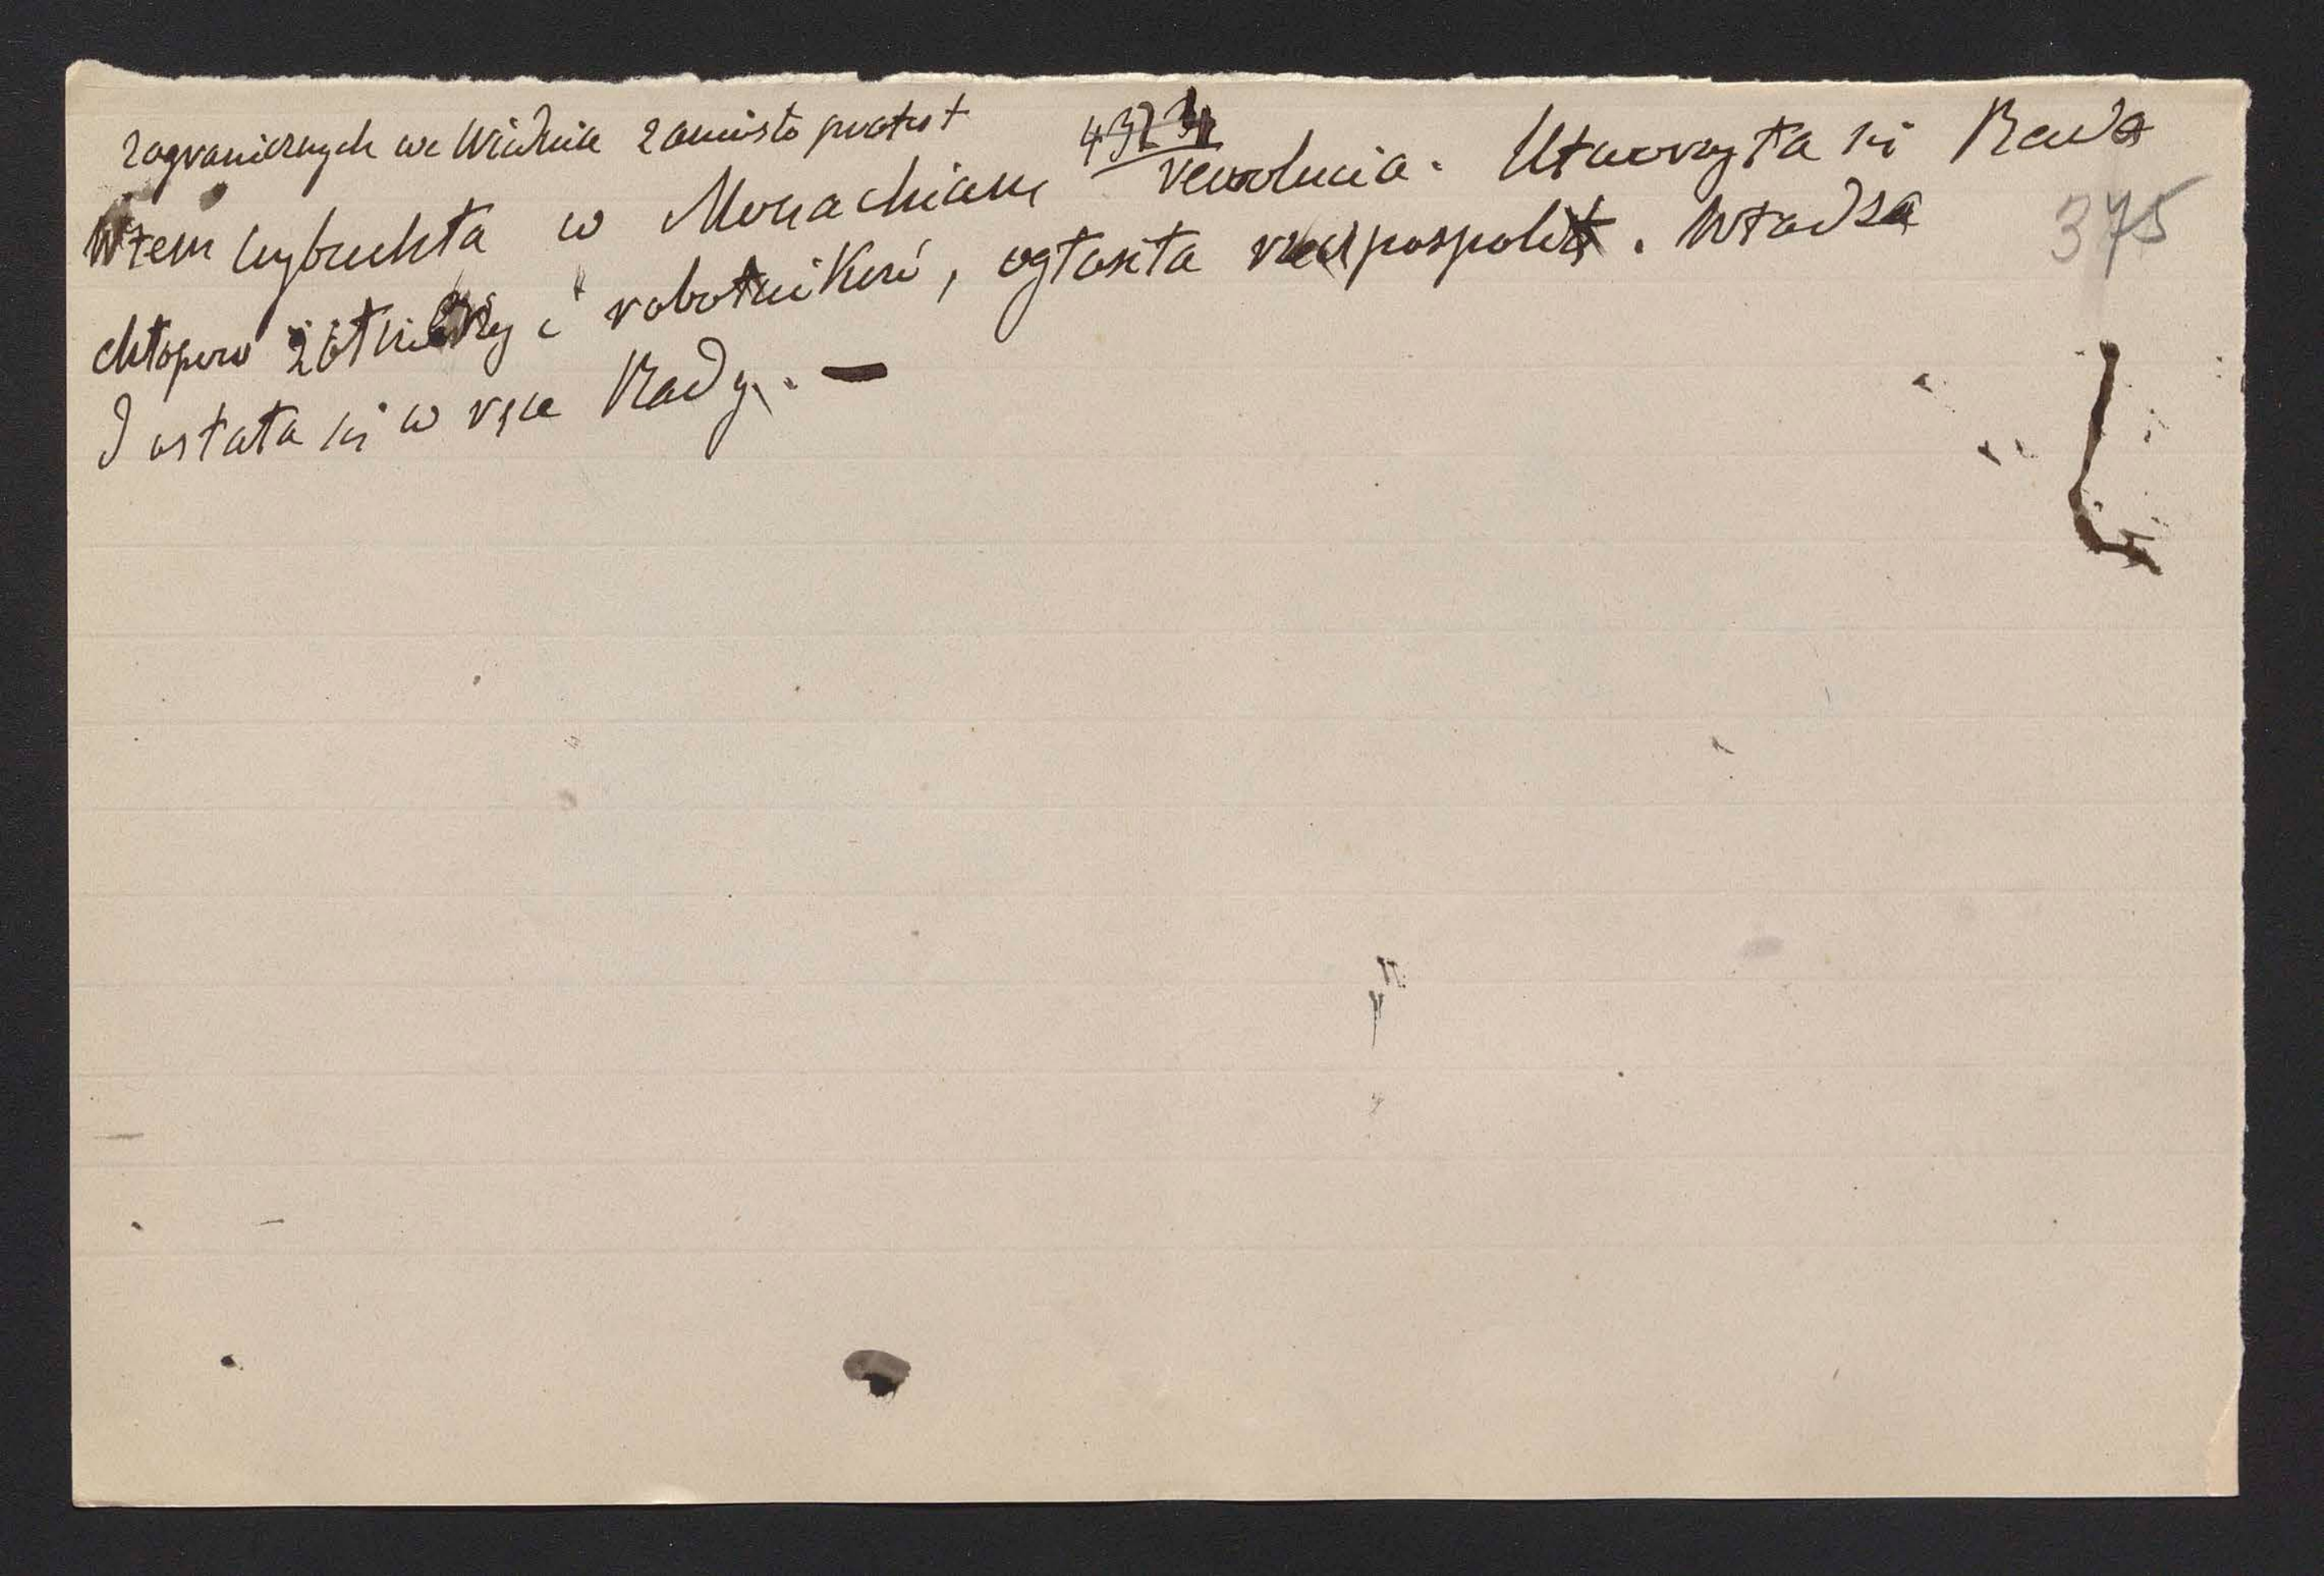 zagranicznych we Wiedniu zaniosło protest
4323
Wtem wybuchła w Monachium rewolucia. Utworzyła się Rada
375
chłopów żołnierzy i robotników, ogłosiła rzeczpospolitą. Władza
Dostała się w ręce Rady. —